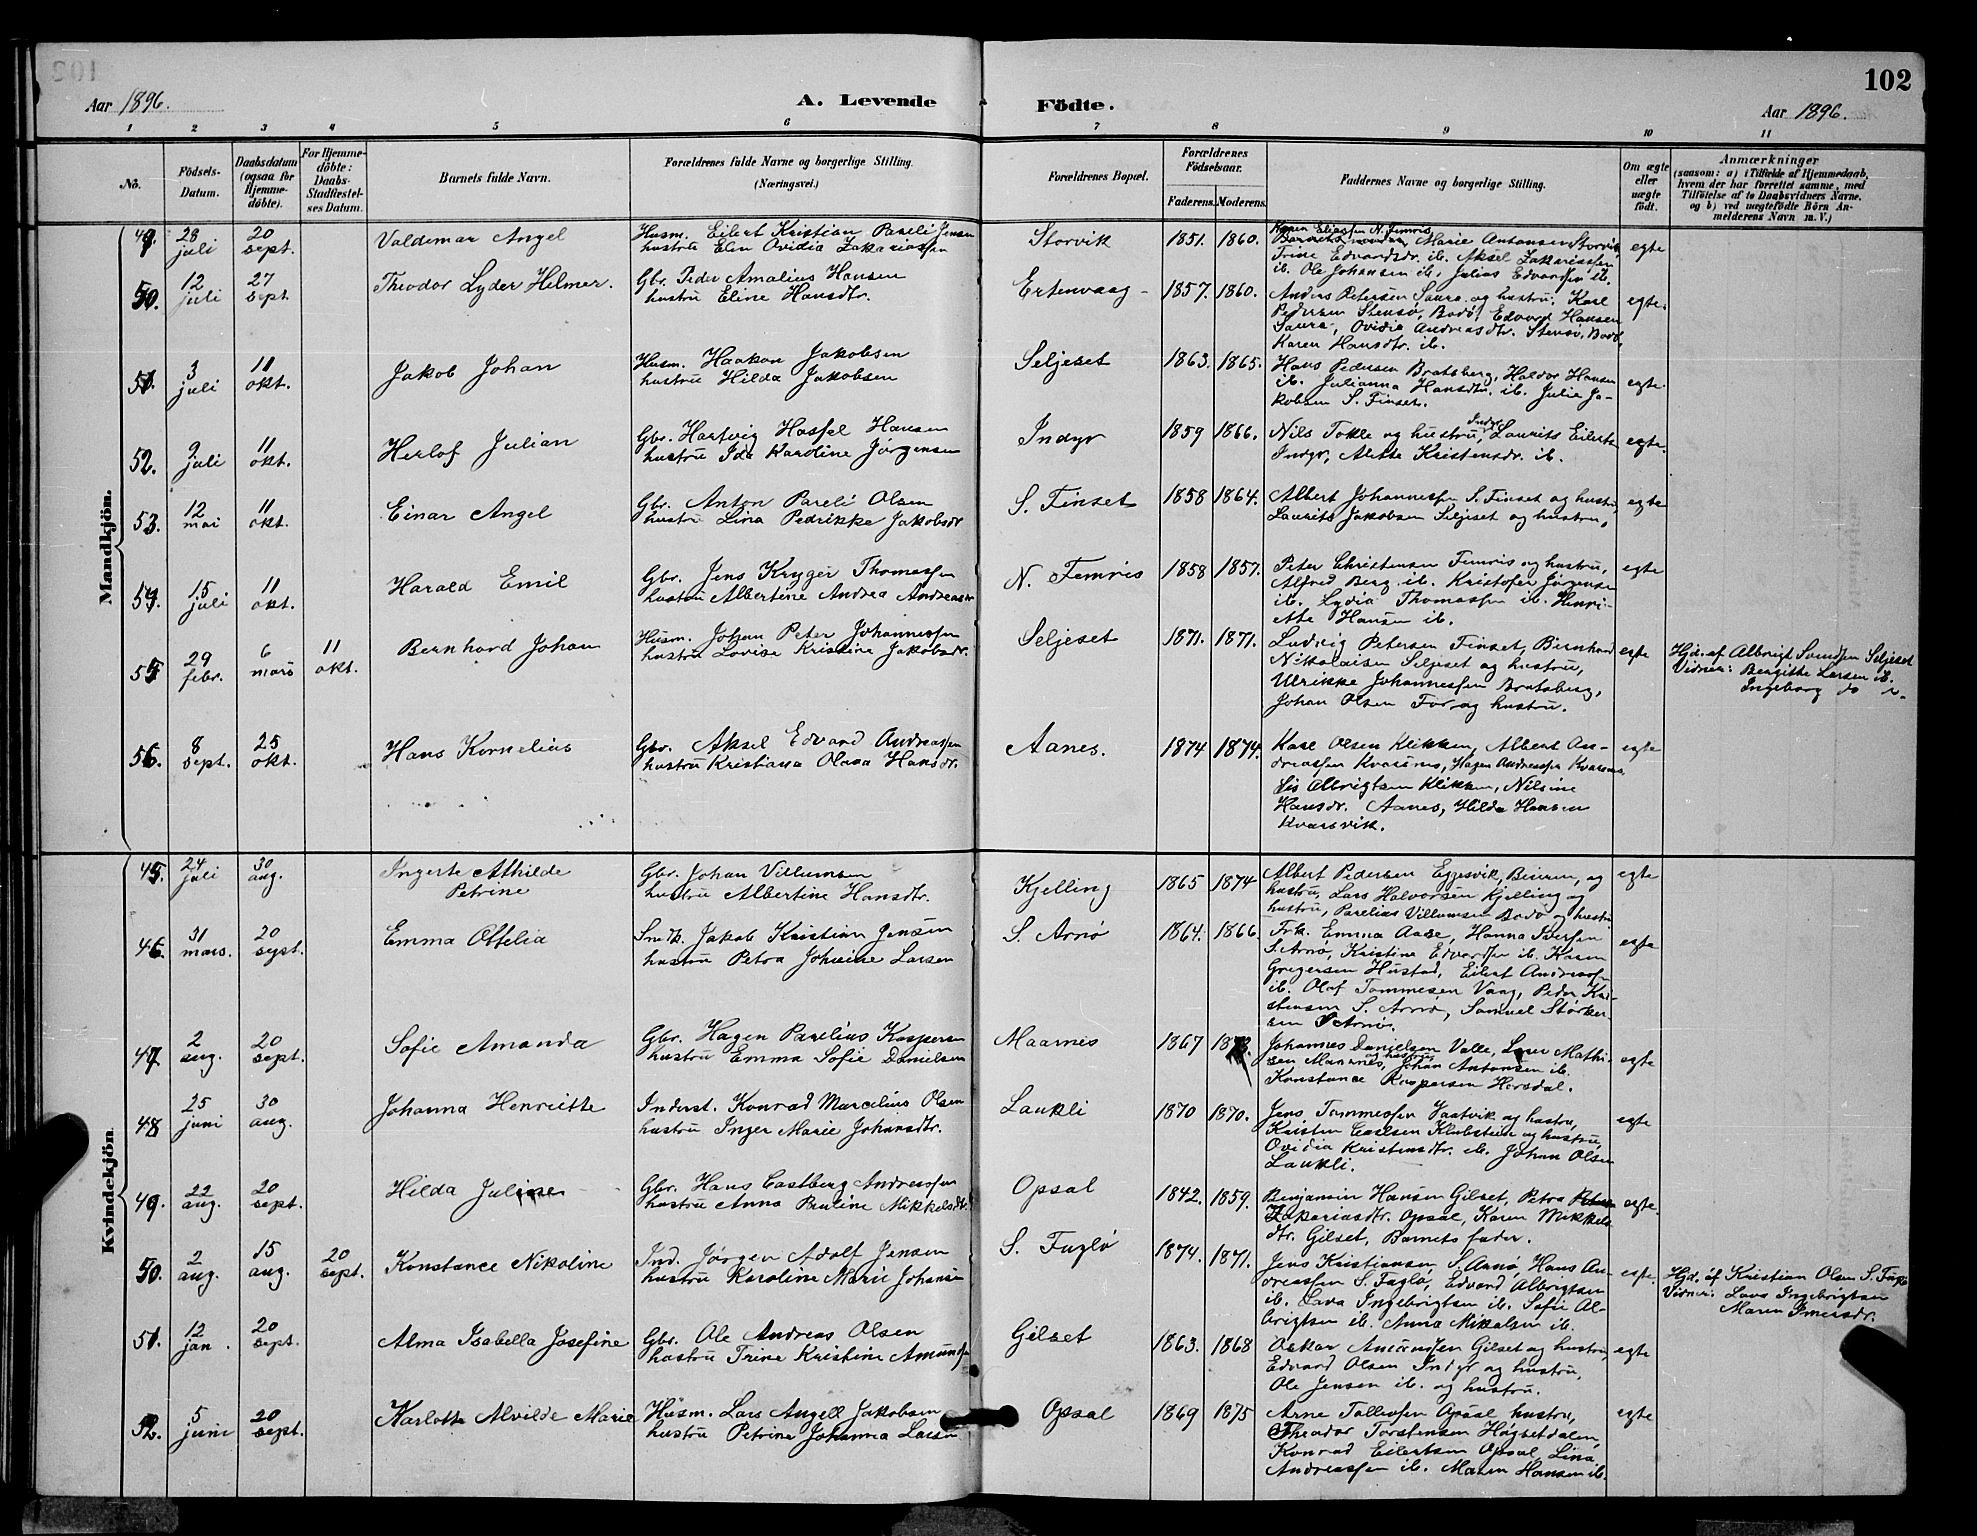 102
Aar 1896. A. Levende Födte. Aar 1896.
1 2 3 4 5 6 7 8 9 10 11
No. Födsels-Datum. Daabsdatum (ogsaa for Hjemme-döbte). For Hjemme-döbte: Daabs-Stadfæstel-ses Datum. Barnets fulde Navn. Forældrenes fulde Navne og borgerlige Stilling. (Næringsvei.) Forældrenes Bopæl. Forældrenes Födselsaar. Faderens. Moderens. Faddernes Navne og borgerlige Stilling. Om ægte eller uægte födt. Anmærkninger (saasom: a) i Tilfælde af Hjemmedaab, hvem der har forrettet samme, med Tilföielse af to Daabsvidners Navne, og b) ved uægtefödte Börn An-melderens Navn m. V.)
Mandkjön.
49. 28 juli 20 sept. Valdemar Angel Husm. Eilert Kristian Pareli Jensen
hustru Elen Ovidia Zakariassen Storvik 1851. 1860. Karen Eliassen N. Femris
Marie Antonsen Storvik,
Trine Edvardsdr. ib. Aksel Zakariassen
ib. Ole Johansen ib. Julius Edvardsen ib. egte
50. 12 juli 27 sept. Theodor Lyder Helmer. Gbr. Peder Amalius Hansen
hustru Eline Hansdtr. Ertenvaag 1857. 1860. Anders Petersen Saura og hustru, Karl
Pedersen Stensø, Bodø, Edvard Hansen
Saura, Ovidia Andreasdtr. Stensø, Bodø,
Karen Hansdtr. ib. egte.
51. 3 juli 11 okt. Jakob Johan Husm. Haakon Jakobsen
hustru Hilda Jakobsen Seljeset 1863. 1865. Hans Pedersen Bratsberg, Haldor Hansen
ib. Julianna Hansdtr. ib. Julie Ja-
kobsen S. Finset. egte.
52. 2 juli 11 okt. Herlof Julian Gbr. Hartvig Hassel Hansen
hustru Ida Karoline Jørgensen Indyr 1859 1866. Nils Tokle og hustru, Indyr, Laurits Eilerts.
Indyr, Alette Kristensdr. ib. egte.
53. 12 mai 11 okt. Einar Angel Gbr. Anton Pareli Olsen
hustru Lina Pedrikke Jakobsdr S. Finset 1858 1864. Albert Johannessen S. Finset og hustru,
Laurits Jakobsen Seljeset og hustru, egte
54. 15 juli 11 okt. Harald Emil Gbr. Jens Kryger Thomassen
hustru Albertine Andrea Andreasdr N. Femris 1858 1857. Peter Christensen Femris og hustru,
Alfred Berg ib. Kristofer Jørgensen
ib. Lydia Thomassen ib. Henri-
ette Hansen ib. egte
55 29 febr. 6 mars 11 okt. Bernhard Johan Husm. Johan Peter Johannessen
hustru Lovise Kristine Jakobsdr. Seljeset 1871. 1871. Ludvig Petersen Finset, Bernhard
Nikolaisen Seljeset og hustru,
Ulrikke Johannessen Bratsberg,
Johan Olsen For og hustru. egte Hjd. af Albrigt Svendsen Seljeset
Vidner: Bergitte Larsen ib.
Ingeborg do
56. 8 sept. 25 okt. Hans Kornelius Gbr. Aksel Edvard Andreassen
hustru Kristiana Olava Hansdr. Aanes. 1874 1874. Karl Olsen Klikken, Albert An-
dreassen Kvarsnes, Hagen Andreassen Kvarsnes
Albrigtsen Klikken, Nilsine
Hansdr. Aanes, Hilda Hansen
Kvarsvik. egte
Kvindekjön.
45. 24 juli 30 aug. Ingerte Athilde
Petrine Gbr. Johan Villumsen
hustru Albertine Hansdtr. Kjelling 1865 1874 Albert Pedersen Eggesvik, Beieren, og
hustru, Lars Halvorsen Kjelling og
hustru, Parelius Villumsen Bodø og hustru egte
46. 31 mars. 20 sept. Emma Ottelia Smdk. Jakob Kristian Jensen
hustru Petra Johanne Larsen S. Arnø 1864. 1866 Frk. Emma Aase, Hanna Iversen
S. Arnø, Kristina Edvardsen ib. Karen
Gregersen Hustad, Eilert Andreassen
ib. Olaf Tommesen Vaag, Peder Kri-
stensen S. Arnø, Samuel Størker-
sen S Arnø. egte
47. 2 aug. 20 sept. Sofie Amanda Gbr. Hagen Parelius Kaspersen
hustru Emma Sofie Danielsen Maarnes 1867 1873. Johannes Danielsen Valle, Mathi-
sen Maarnes, og hustru, Johan Antonsen ib.
Konstance Kaspersen Horsdal. egte
48 25 juni 30 aug. Johanna Henriette Inderst. Konrad Marcelius Olsen
hustru Inger Marie Johansdtr. Laukli 1870 1870. Jens Tommessen Vaatvik og hustru,
Kristen Carlsen Klubstein og hustru,
Ovidia Kristensdtr. ib. Johan Olsen
Laukli. egte
49. 22 aug. 20 sept. Hilda Juline Gbr. Hans Castberg Andreassen
hustru Anna Pauline Mikkelsdtr. Opsal 1842. 1859. Benjamin Hansen Gilset, Petra
Zakariasdtr. Opsal, Karen Mikkels
dtr. Gilset, Barnets fader. egte.
50. 2 aug. 15 aug. 20 sept. Konstance Nikoline Ind. Jørgen Adolf Jensen
hustru Karoline Marie Johansen S. Fuglø 1874. 1871. Jens Kristiansen S. Arnø, Hans An-
dreassen S. Fuglø, Edvard Albrigtsen
ib. Lava Ingebrigtsen ib. Sofie Al-
brigtsen ib. Anna Mikalsen ib. egte. Hjd. af Kristian Olsen S. Fuglø
Vidner: Lava Ingebrigtsen
Maren
51. 12 jan. 20 sept. Alma Isabella Josefine Gbr. Ole Andreas Olsen
hustru Trine Kristine Amundsen Gilset 1863. 1868 Oskar Amundsen Gilset og hustru,
Edvard Olsen Indyr og hustru,
Ole Jensen ib. og hustru. egte
52. 5 juni 20 sept. Karlotte Alvilde Marie Husm. Lars Angell Jakobsen
hustru Petrine Johanna Larsen Opsal 1869 1875 Arne Tollevsen Opsal hustru,
Theodor Torstensen Høgsetdalen,
Konrad Eilertsen Opsal, Lina
Andreassen ib. Maren Hansen ib. egte